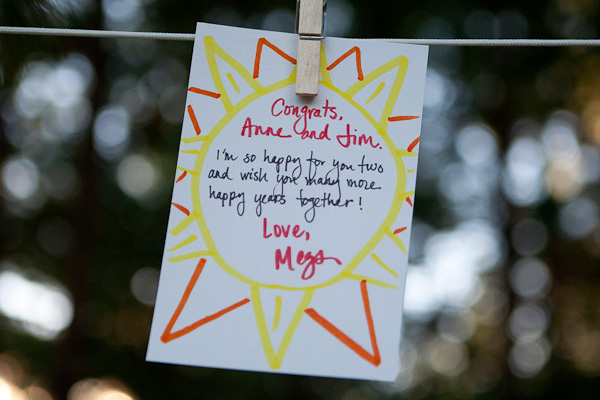 Congrats,
Anne and Jim.
I'm so happy for you two
and wish you many more
happy years together!
Love,
Megs